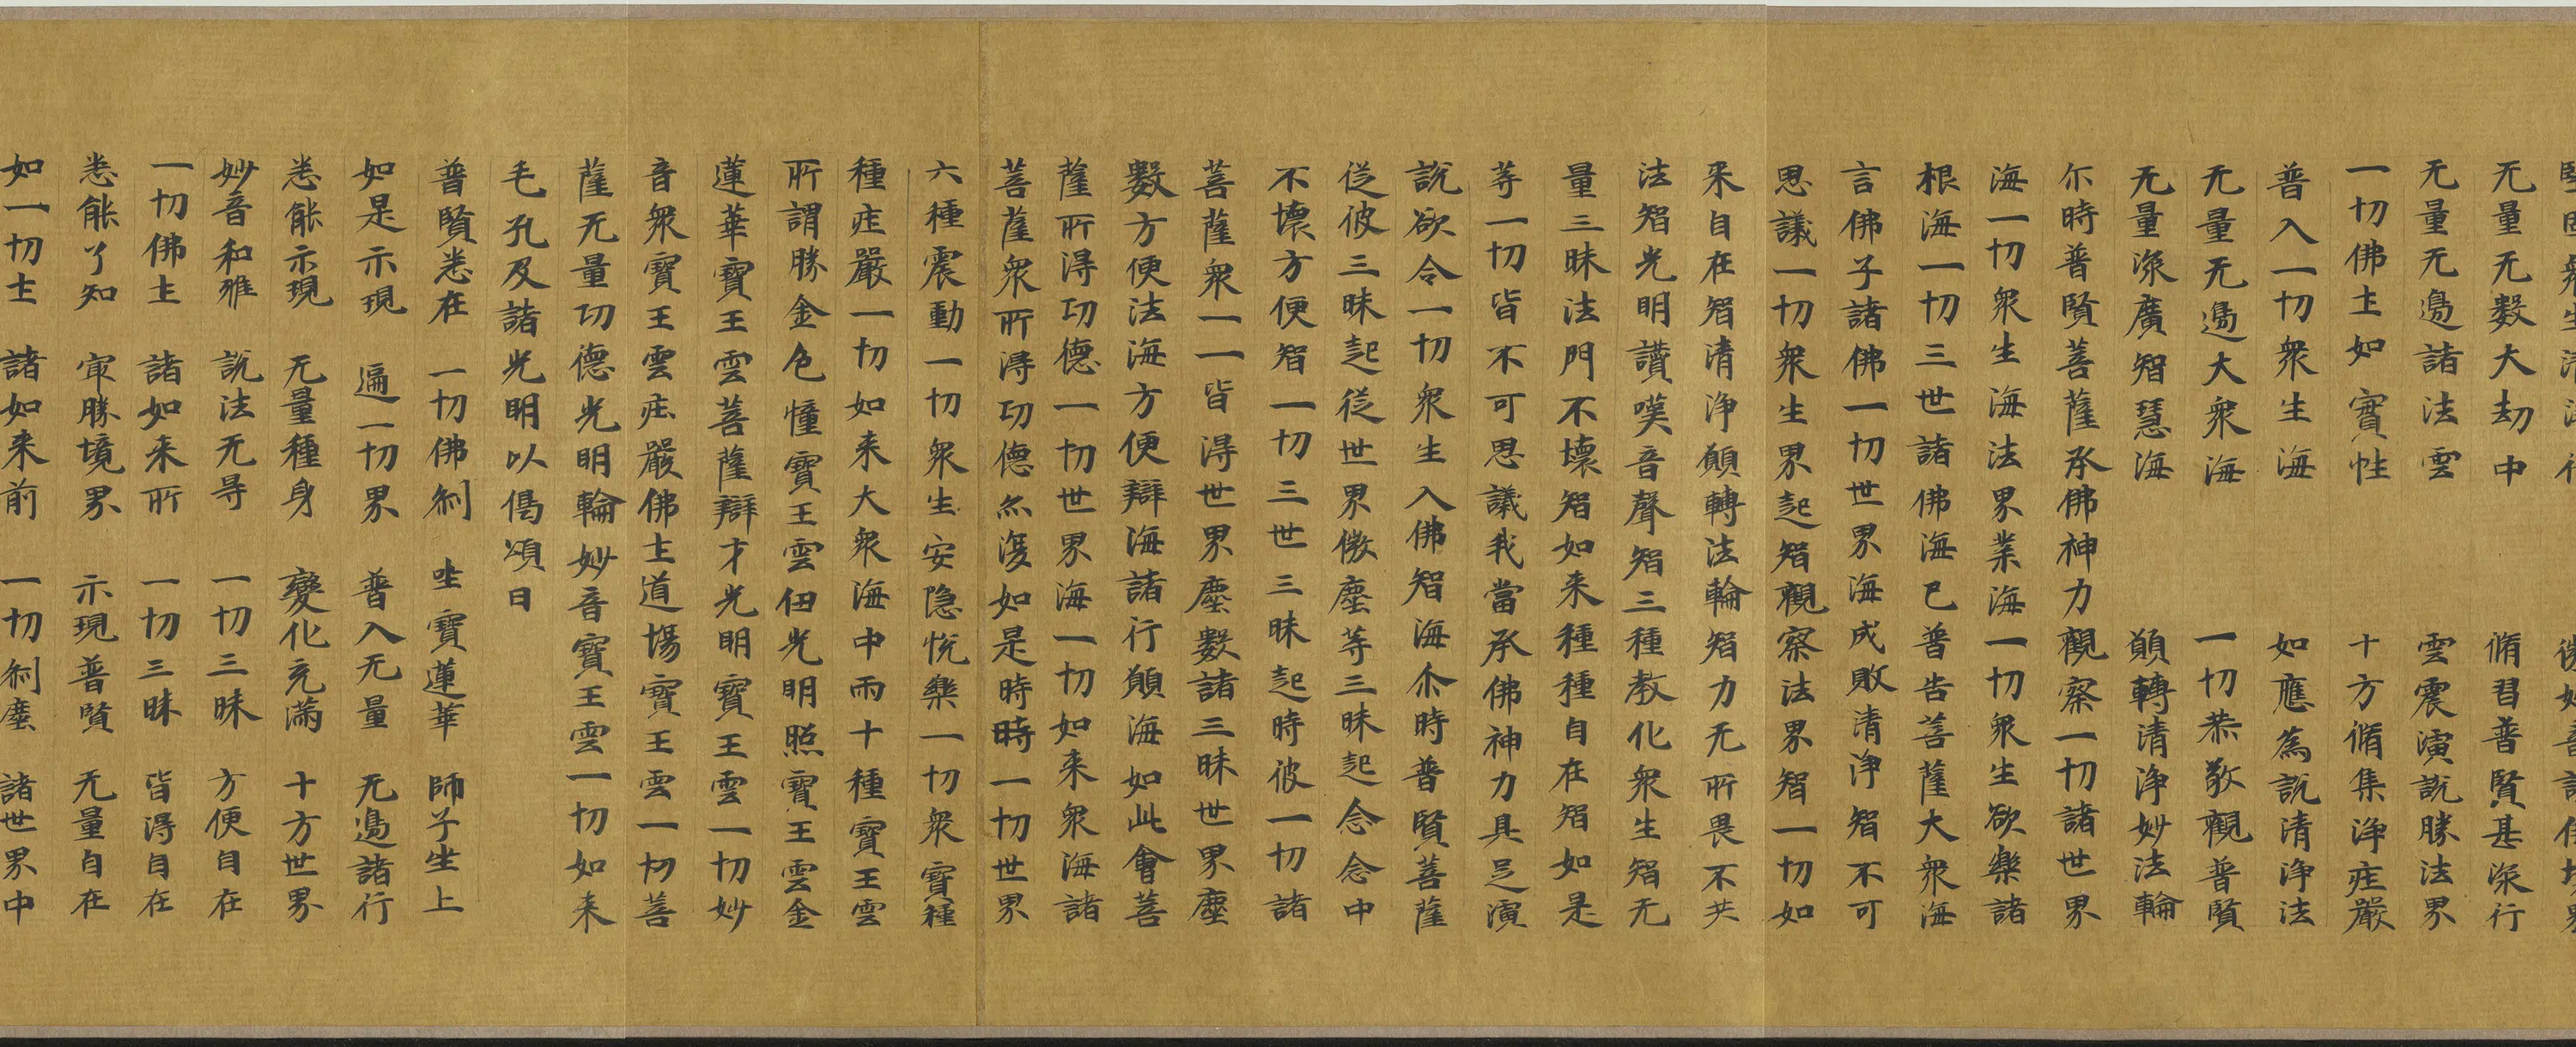 无量无数大劫中　脩習普賢甚深行
无量无邊諸法雲　雲震演説勝法界
一切佛土如實性　十方脩集浄庄嚴
普入一切衆生海　如應為説清浄法
无量无邊大衆海　一切恭敬觀普賢
无量深廣智慧海　願轉清浄妙法輪
尒時普賢菩薩承佛神力觀察一切諸世界
海一切衆生海法界業海一切衆生欲樂諸
根海一切三世諸佛海已普告菩薩大衆海
言佛子諸佛一切世界海成敗清浄智不可
思議一切衆生界起智觀察法界智一切如
来自在智清浄願轉法輪智力无所畏不共
法智光明讚嘆音聲智三種教化衆生智无
量三昧法門不壞智如来種種自在智如是
等一切皆不可思議我當承佛神力具足演
說欲令一切衆生入佛智海尒時普賢菩薩
従彼三昧起従世界微塵等三昧起念念中
不壞方便智一切三世三昧起時彼一切諸
菩薩衆一一皆淂世界塵數諸三昧世界塵
數方便法海方便辯海諸行願海如此會菩
薩所淂功德一切世界海一切如来衆海諸
菩薩衆所淂功德亦復如是時時一切世界
六種震動一切衆生安隐恱樂一切衆寶種
種庄嚴一切如来大衆海中雨十種寶王雲
所謂勝金色幢寶王雲佛光明照寶王雲金
蓮華寶王雲菩薩辯才光明寶王雲一切妙
音衆寶王雲庄嚴佛土道場寶王雲一切菩
薩无量功德光明輪妙音寶王雲一切如来
毛孔及諸光明以偈頌曰
普賢悉在　一切佛刹　坐寶蓮華　師子坐上
如是示現　遍一切界　普入无量　无邊諸行
悉能示現　无量種身　變化充滿　十方世界
妙音和雅　說法无㝵　一切三昧　方便自在
一切佛土　諸如来所　一切三昧　皆淂自在
悉能了知　冣勝境界　示現普賢　无量自在
如一切土　諸如来前　一切刹塵　諸世界中